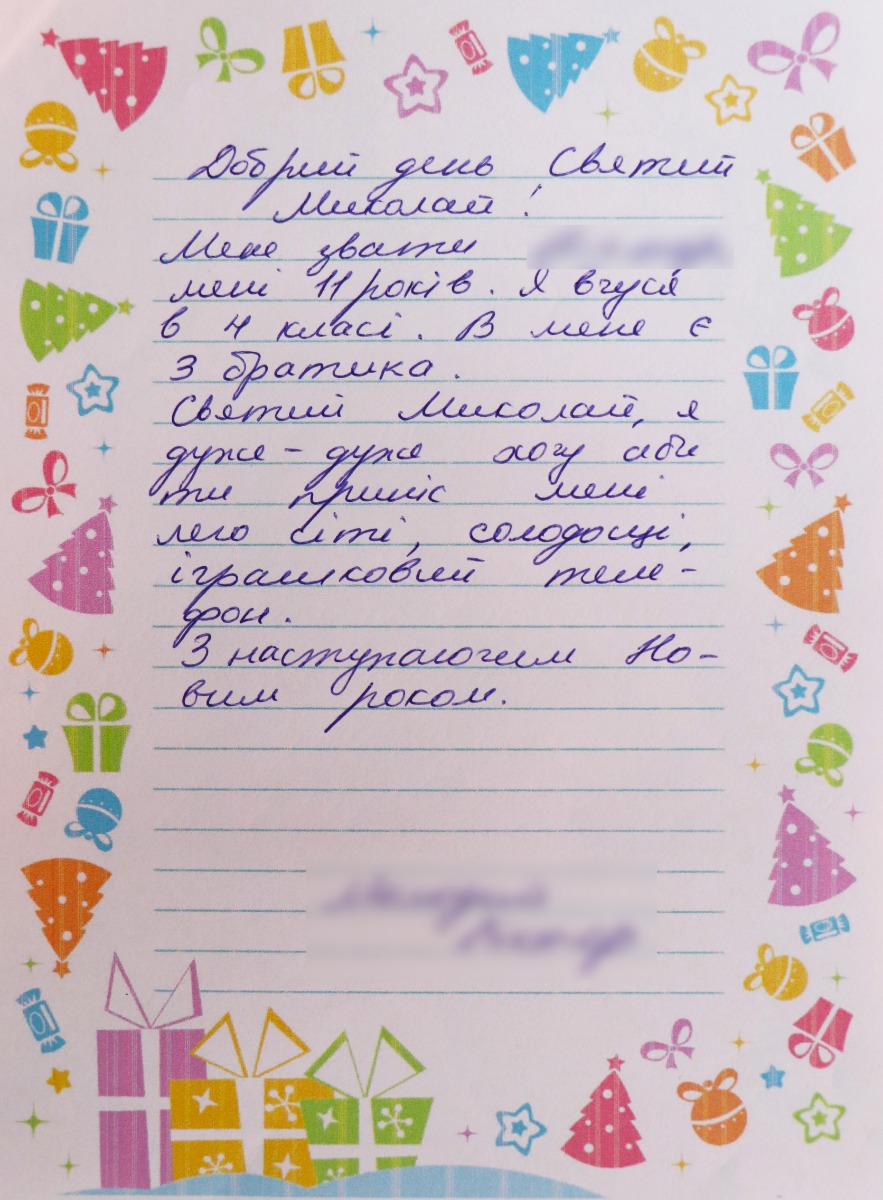 Добрий день Святий
Миколай!
Мене звати
мені 11 років. Я вчуся
в 4 класі. В мене є
3 братика.
Святий Миколай, я
дуже-дуже хочу аби
ти приніс мені
лего сіті, солодощі,
іграшковий теле-
фон.
З наступаючим Но-
вим роком.